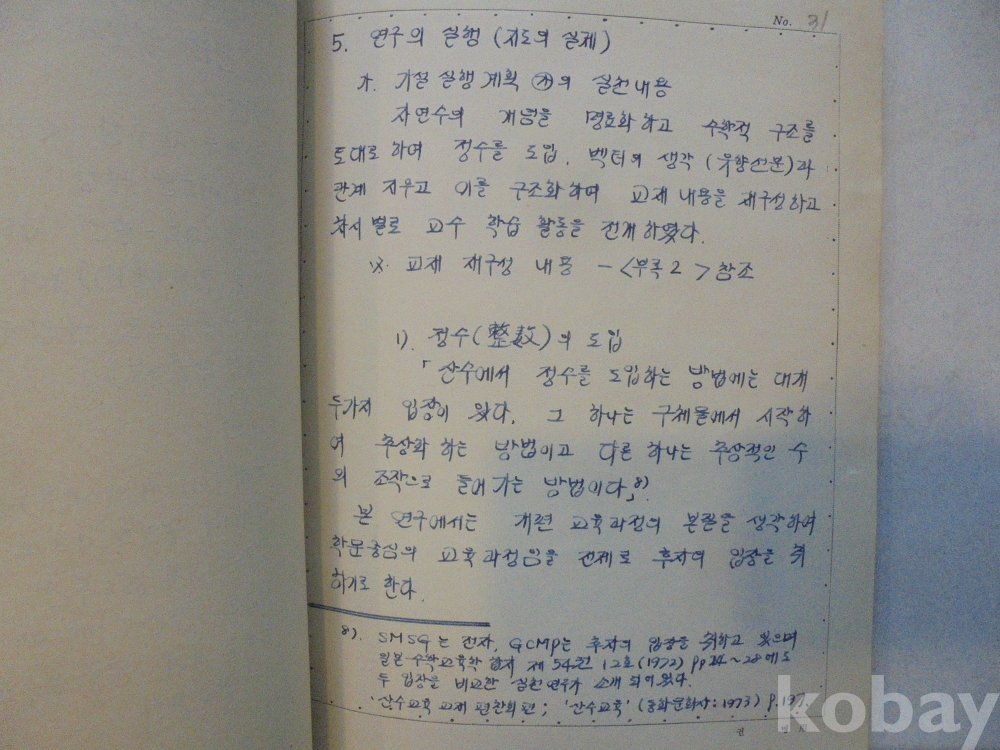 No. 31
5. 연구의 실행 (지도의 실제)
가. 가설 실행 계획 ㉮의 실천 내용
자연수의 개념을 명료화하고 수학적 구조를
토대로 하여 정수를 도입, 벡터의 생각 (유향선분)과
관계 지우고 이를 구조화하여 교재 내용을 재구성하고
차시별로 교수 학습 활동을 전개하였다.
※ 교재 재구성 내용 - <부록 2> 참조
1). 정수(整数)의 도입
「산수에서 정수를 도입하는 방법에는 대개
두가지 입장이 있다. 그 하나는 구체물에서 시작하
여 추상화 하는 방법이고 다른 하나는 추상적인 수
의 조작으로 들어가는 방법이다」8).
본 연구에서는 개편 교육과정의 본질을 생각하여
학문중심의 교육과정임을 전제로 후자의 입장을 취
하기로 한다.
8). SMSG는 전자, GCMP는 후자의 입장을 취하고 있으며
일본 수학교육학 회지 제 54권 12호 (1972) pp 24~28에도
두 입장을 비교한 실천연구가 소개 되어 있다.
산수교육 교재 편찬회편; '산수교육' (중화문화사: 1973) p.197.
kobay